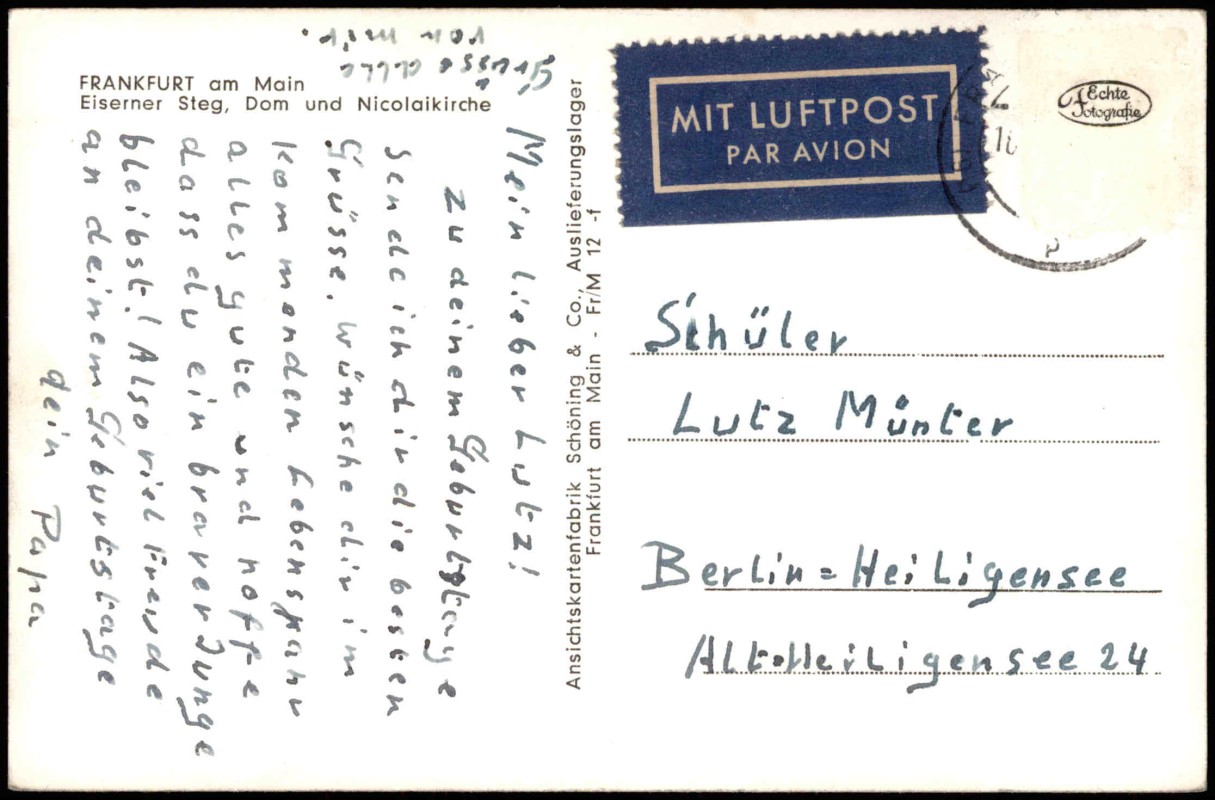 FRANKFURT am Main
Eiserner Steg, Dom und Nicolaikirche
Mein lieber Lutz!
zu deinem Geburtstage
sende ich dir die besten
Grüsse. Wünsche dir im
kommenden Lebensjahr
alles gute und hoffe
dass du ein braver Junge
bleibst! Also viel Freude
an deinem Geburtstage
dein Papa
Grüsse alle
von mir.
Ansichtskartenfabrik Schöning & Co., Auslieferungslager
Frankfurt am Main - Fr/M 12 -f
MIT LUFTPOST
PAR AVION
Echte
Fotografie
Schüler
Lutz Münter
Berlin=Heiligensee
Alt=Heiligensee 24